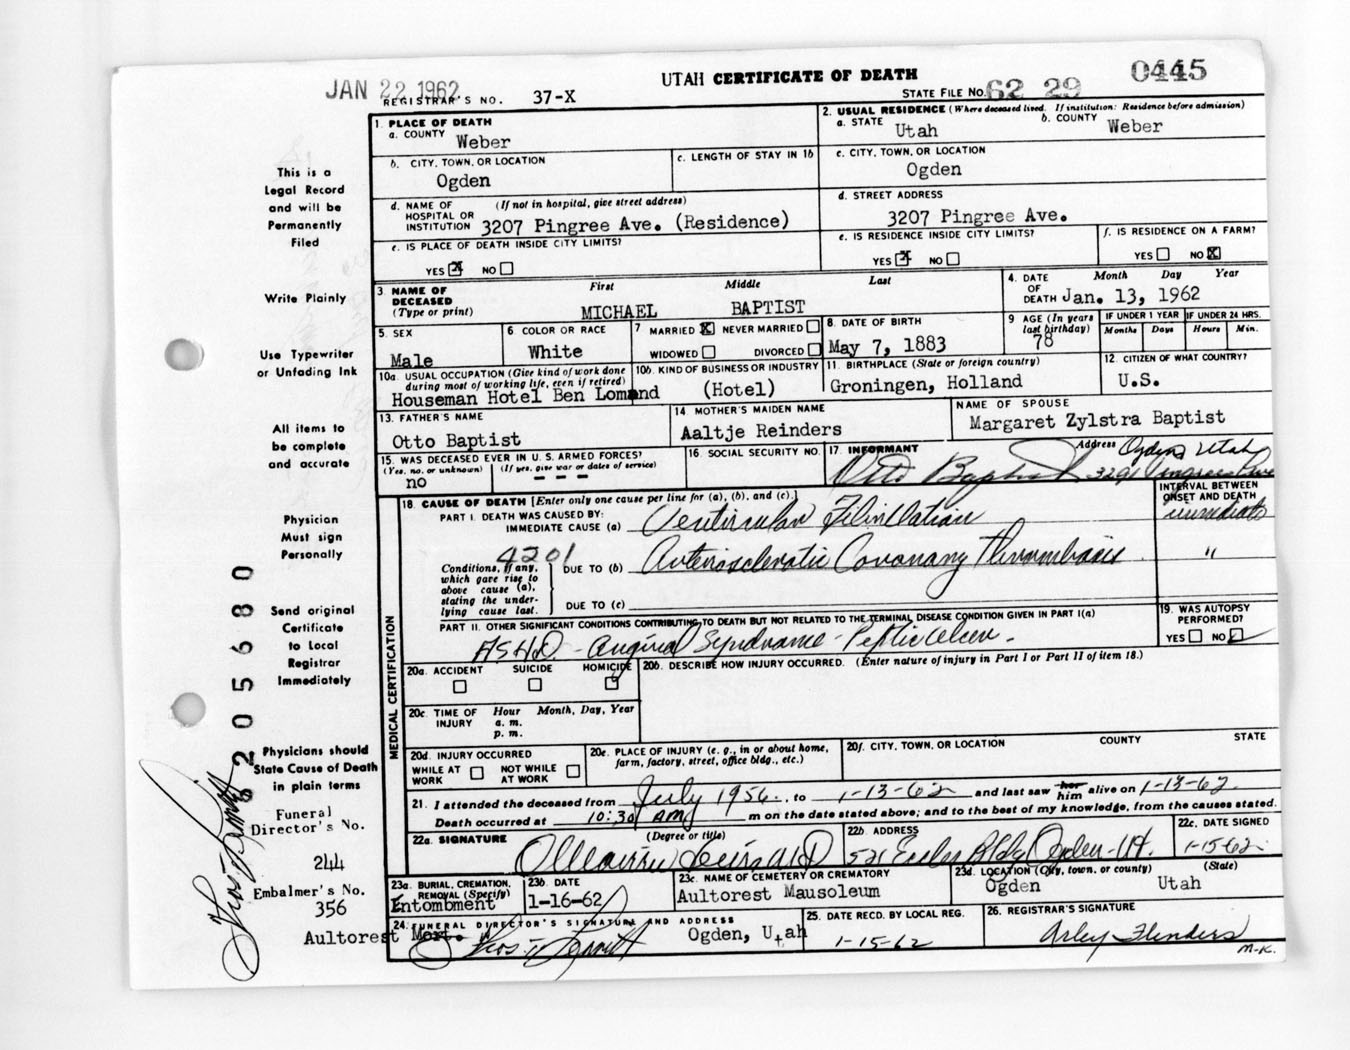 JAN 22 1962
UTAH CERTIFICATE OF DEATH
0445
REGISTRAR'S NO. 37-X
STATE FILE NO. 62 29
1. PLACE OF DEATH
a. COUNTY Weber
2. USUAL RESIDENCE (Where deceased lived. If institution: Residence before admission)
a. STATE Utah b. COUNTY Weber
b. CITY, TOWN, OR LOCATION Ogden
c. LENGTH OF STAY IN 1b
c. CITY, TOWN, OR LOCATION Ogden
d. NAME OF HOSPITAL OR INSTITUTION (If not in hospital, give street address) 3207 Pingree Ave. (Residence)
d. STREET ADDRESS 3207 Pingree Ave.
e. IS PLACE OF DEATH INSIDE CITY LIMITS?
YES X NO
e. IS RESIDENCE INSIDE CITY LIMITS?
YES X NO
f. IS RESIDENCE ON A FARM?
YES NO X
3. NAME OF DECEASED (Type or print)
First Middle Last
MICHAEL BAPTIST
4. DATE OF DEATH Month Day Year
Jan. 13, 1962
5. SEX Male
6. COLOR OR RACE White
7 MARRIED X NEVER MARRIED
WIDOWED DIVORCED
8. DATE OF BIRTH May 7, 1883
9 AGE (In years last birthday) 78
IF UNDER 1 YEAR Months Days
IF UNDER 24 HRS. Hours Min.
10a. USUAL OCCUPATION (Give kind of work done during most of working life, even if retired)
Houseman Hotel Ben Lomand
10b. KIND OF BUSINESS OR INDUSTRY (Hotel)
11. BIRTHPLACE (State or foreign country) Groningen, Holland
12. CITIZEN OF WHAT COUNTRY? U.S.
13. FATHER'S NAME Otto Baptist
14 MOTHER'S MAIDEN NAME Aaltje Reinders
NAME OF SPOUSE Margaret Zylstra Baptist
15. WAS DECEASED EVER IN U. S. ARMED FORCES?
(Yes, no, or unknown) (If yes, give war or dates of service)
no - - -
16. SOCIAL SECURITY NO.
17. INFORMANT Otto Baptist Address Ogden, Utah
MEDICAL CERTIFICATION
18. CAUSE OF DEATH [Enter only one cause per line for (a), (b), and (c).]
INTERVAL BETWEEN ONSET AND DEATH
PART I. DEATH WAS CAUSED BY:
IMMEDIATE CAUSE (a) Ventricular Fibrillation immediate
4201
Conditions, if any, which gave rise to above cause (a), stating the underlying cause last.
DUE TO (b) Arteriosclerotic Coronary Thrombosis "
DUE TO (c)
PART II. OTHER SIGNIFICANT CONDITIONS CONTRIBUTING TO DEATH BUT NOT RELATED TO THE TERMINAL DISEASE CONDITION GIVEN IN PART I(a)
ASHD - anginal Syndrome - Peptic ulcer.
19. WAS AUTOPSY PERFORMED?
YES NO
20a. ACCIDENT SUICIDE HOMICIDE
20b. DESCRIBE HOW INJURY OCCURRED. (Enter nature of injury in Part I or Part II of item 18.)
20c. TIME OF INJURY Hour Month, Day, Year
a. m.
p. m.
20d. INJURY OCCURRED
WHILE AT WORK NOT WHILE AT WORK
20e. PLACE OF INJURY (e. g., in or about home, farm, factory, street, office bldg., etc.)
20f. CITY, TOWN, OR LOCATION COUNTY STATE
21. I attended the deceased from July 1956, to 1-13-62 and last saw her him alive on 1-13-62.
Death occurred at 10:30 AM m on the date stated above; and to the best of my knowledge, from the causes stated.
22a. SIGNATURE (Degree or title)
22b. ADDRESS 521 Eccles Bldg Ogden - Ut.
22c. DATE SIGNED 1-15-62
23a. BURIAL, CREMATION, REMOVAL (Specify) Entombment
23b. DATE 1-16-62
23c. NAME OF CEMETERY OR CREMATORY Aultorest Mausoleum
23d. LOCATION (City, town, or county) (State)
Ogden Utah
24. FUNERAL DIRECTOR'S SIGNATURE AND ADDRESS
Aultorest Mort. Ogden, Utah
25. DATE RECD. BY LOCAL REG. 1-15-62
26. REGISTRAR'S SIGNATURE Arley Flinders
M-K.
This is a
Legal Record
and will be
Permanently
Filed
Write Plainly
Use Typewriter
or Unfading Ink
All items to
be complete
and accurate
Physician
Must sign
Personally
Send original
Certificate
to Local
Registrar
Immediately
Physicians should
State Cause of Death
in plain terms
Funeral
Director's No.
244
Embalmer's No.
356
6205680